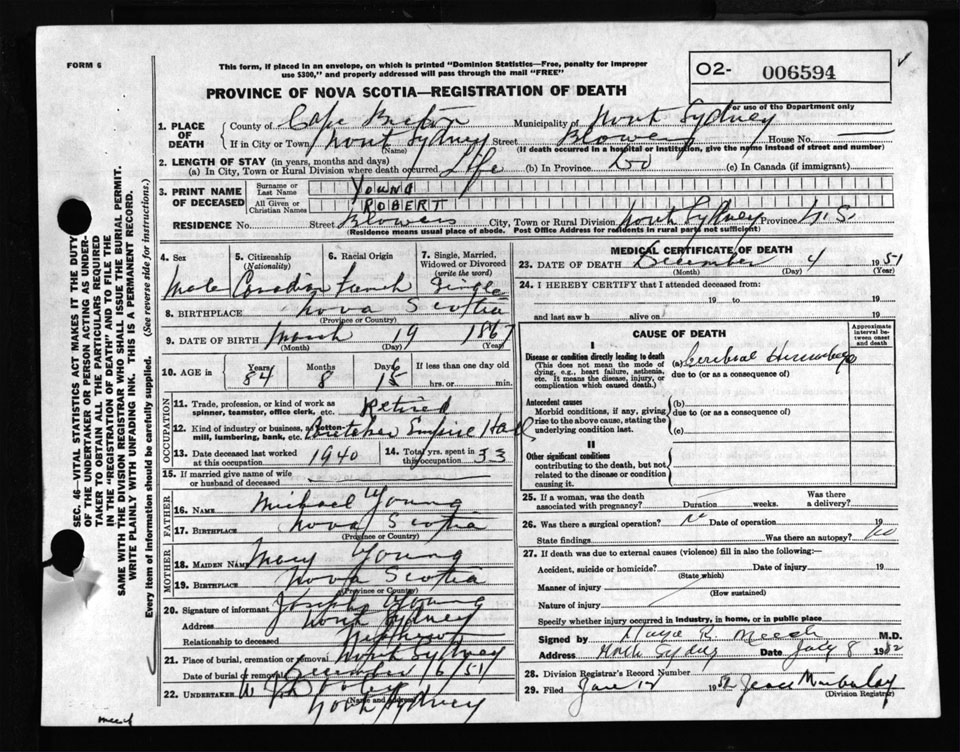 FORM 6
This form, if placed in an envelope, on which is printed "Dominion Statistics—Free, penalty for improper
use $300," and properly addressed will pass through the mail "FREE"
O2- 006594
For use of the Department only
PROVINCE OF NOVA SCOTIA—REGISTRATION OF DEATH
1. PLACE OF DEATH
County of Cape Breton Municipality of North Sydney
If in City or Town North Sydney Street Blowers House No. —
(Name) (If death occurred in a hospital or institution, give the name instead of street and number)
2. LENGTH OF STAY (in years, months and days)
(a) In City, Town or Rural Division where death occurred Life (b) In Province Do (c) In Canada (if immigrant)
3. PRINT NAME OF DECEASED
Surname or Last Name YOUNG
All Given or Christian Names ROBERT
RESIDENCE No. Street Blowers City, Town or Rural Division North Sydney Province N.S.
(Residence means usual place of abode. Post Office Address for residents in rural parts not sufficient)
4. Sex
5. Citizenship (Nationality)
6. Racial Origin
7. Single, Married, Widowed or Divorced (write the word)
Male Canadian French Single
8. BIRTHPLACE Nova Scotia
(Province or Country)
9. DATE OF BIRTH March 19 1867
(Month) (Day) (Year)
10. AGE in Years Months Days If less than one day old
84 8 15 hrs. or min.
OCCUPATION
11. Trade, profession, or kind of work as
spinner, teamster, office clerk, etc. Retired
12. Kind of industry or business, as cotton
mill, lumbering, bank, etc. Empire
13. Date deceased last worked
at this occupation 1940
14. Total yrs. spent in
this occupation 33
15. If married give name of wife
or husband of deceased
FATHER
16. NAME Michael Young
17. BIRTHPLACE Nova Scotia
(Province or Country)
MOTHER
18. MAIDEN NAME Mary Young
19. BIRTHPLACE Nova Scotia
(Province or Country)
20. Signature of informant Joseph Young
Address North Sydney
Relationship to deceased
21. Place of burial, cremation or removal North Sydney
Date of burial or removal December 6/51
22. UNDERTAKER
(Name and address)
North Sydney
MEDICAL CERTIFICATE OF DEATH
23. DATE OF DEATH December 4 1951
(Month) (Day) (Year)
24. I HEREBY CERTIFY that I attended deceased from:
19 to 19
and last saw h alive on 19
CAUSE OF DEATH
Approximate interval between onset and death
I
Disease or condition directly leading to death
(This does not mean the mode of
dying, e.g., heart failure, asthenia,
etc. It means the disease, injury, or
complication which caused death.)
(a) Cerebral Hemorrhage
due to (or as a consequence of)
Antecedent causes
Morbid conditions, if any, giving
rise to the above cause, stating the
underlying condition last.
(b)
due to (or as a consequence of)
(c)
II
Other significant conditions
contributing to the death, but not
related to the disease or condition
causing it.
25. If a woman, was the death
associated with pregnancy? Duration weeks. Was there
a delivery?
26. Was there a surgical operation? No Date of operation 19
State findings Was there an autopsy? No
27. If death was due to external causes (violence) fill in also the following:—
Accident, suicide or homicide? Date of injury 19
(State which)
Manner of injury
(How sustained)
Nature of injury
Specify whether injury occurred in industry, in home, or in public place
Signed by R. M.D.
Address North Sydney Date July 8 1952
28. Division Registrar's Record Number
29. Filed 1952
(Division Registrar)
SEC. 46—VITAL STATISTICS ACT MAKES IT THE DUTY
OF THE UNDERTAKER OR PERSON ACTING AS UNDER-
TAKER TO OBTAIN ALL THE PARTICULARS REQUIRED
IN THE "REGISTRATION OF DEATH" AND TO FILE THE
SAME WITH THE DIVISION REGISTRAR WHO SHALL ISSUE THE BURIAL PERMIT.
WRITE PLAINLY WITH UNFADING INK. THIS IS A PERMANENT RECORD.
Every item of information should be carefully supplied. (See reverse side for instructions.)